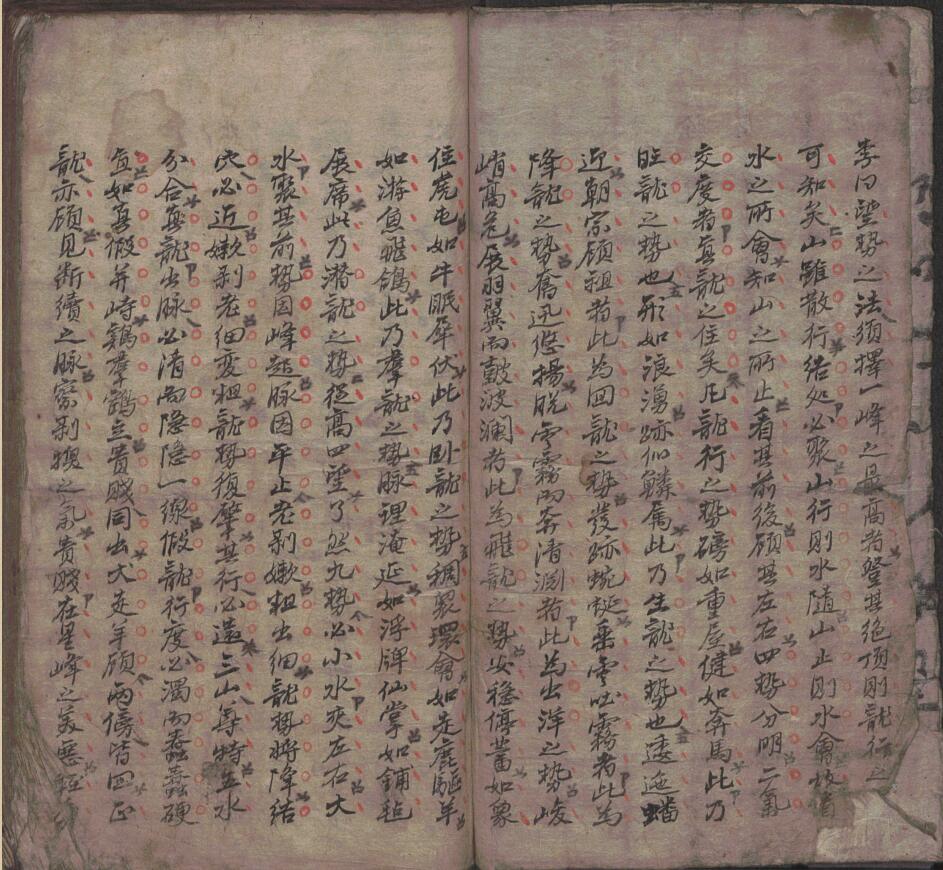 李曰望勢之法須擇一峰之最高者登其絕頂則龍行之
可知矣山雖散行結處必聚山行則水隨山止則水會故
水之所會知山之所止看其前後顧其左右四勢分明二氣
交度者真龍之住矣凡龍行之勢礴如重屋健如奔馬此乃
旺龍之勢也形如浪湧跡似鱗屬此乃生龍之勢也逶迤蟠
近朝宗顧祖者此為回龍之勢發跡蜿蜒乘雲吐霧者此為
降龍之勢奮迅悠揚脫雲霧而奔清淵者此為出洋之勢峻
峭高危展羽翼而鼓波瀾者此為飛龍之勢安穩停蓄如象
住虎屯如牛眠犀伏此乃臥龍之勢稠裂環會如走鹿驅羊
如游魚飛鴿此乃羣龍之勢脉理淹延如浮牌仙掌如鋪毡
展席此乃潛龍之勢從高四望了然九勢必小水夾左右大
水聚其前勢因峰起脉因平止老剝嫩粗出細龍勢將降結
穴必近嫩剥老細変粗龍勢復擎其行必遠三山尊特五水
分合真龍出脉必清而隱隱一線假龍行度必濁而蠢蠢硬
直如真假并峙鷄羣鶴立貴賤同出犬走羊顧兩傍皆回正
龍亦顧見断續之脉察剥換之氣貴賤在星峰之美惡輕